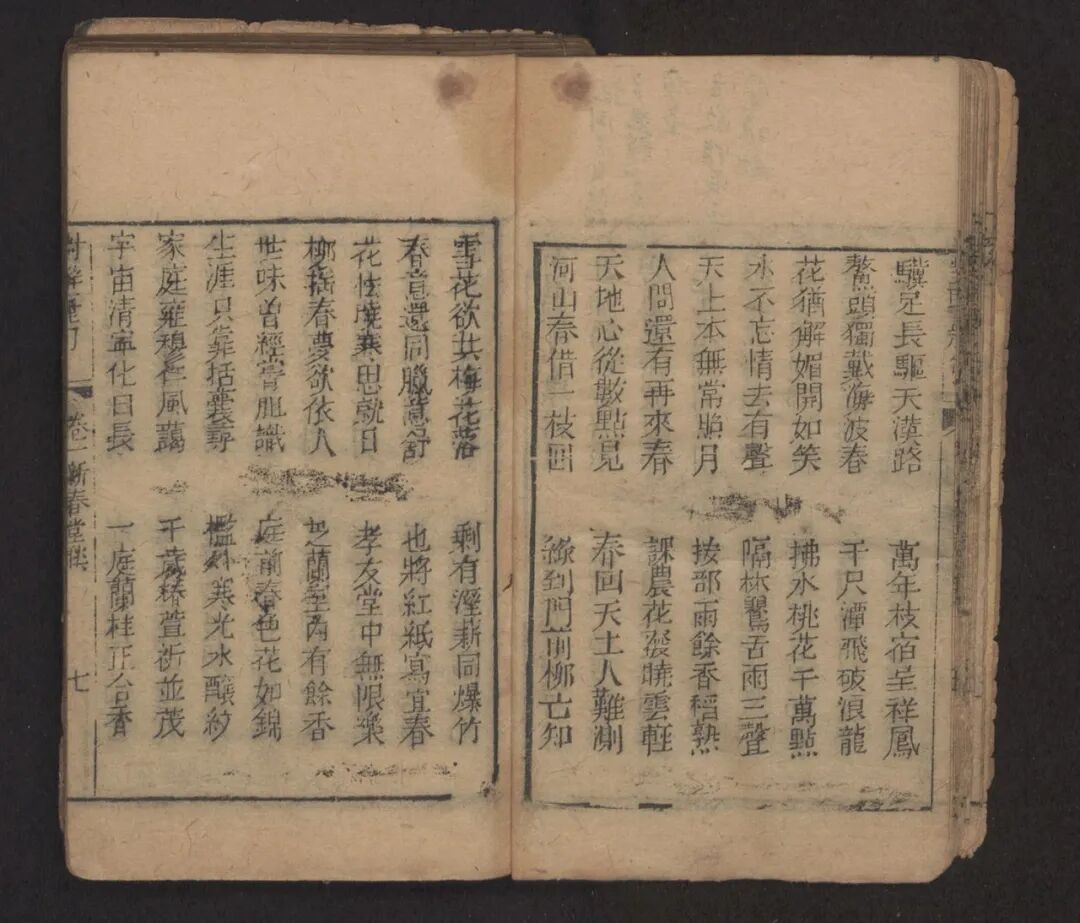 驥足長驅天漢路
鰲頭獨戴海波春
花猶解媚開如笑
水不忘情去有聲
天上本無常照月
人間還有再來春
天地心從數點見
河山春借一枝囘
萬年枝宿呈祥鳳
千尺潭飛破浪龍
拂水桃花千萬點
隔林鶯舌兩三聲
按部雨餘香稻熟
課農花發曉雲輕
春回天上人難測
綠到門前柳已知
雪花欲共梅花落
春意還同臘意舒
花怯曉寒思就日
柳搖春夢欲依人
世味曾經嘗胆識
生涯只靠括囊尋
家庭雍穆仁風藹
宇宙清寧化日長
剩有溼薪同爆竹
也將紅紙寫宜春
孝友堂中無限樂
芝蘭室內有餘香
庭前春色花如錦
檻外寒光水釀紗
千歲椿萱祈並茂
一庭蘭桂正合香
卷一 新春堂聯 七